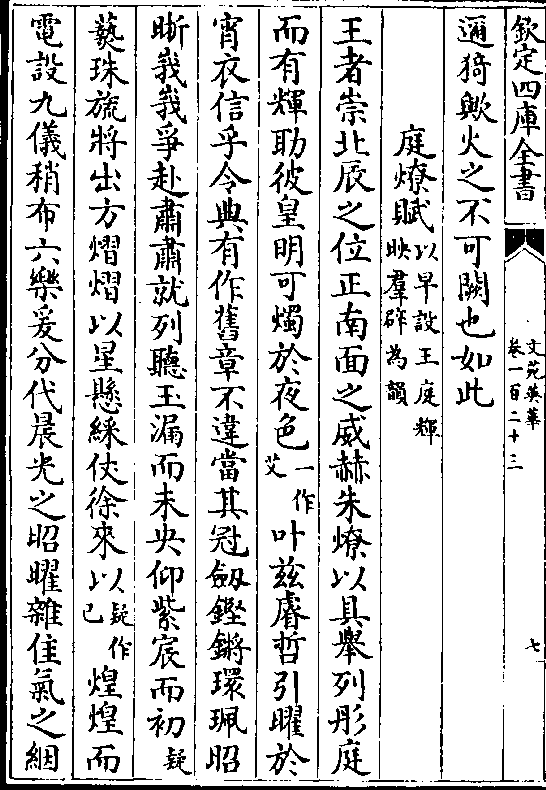 欽定四庫全書
文苑英華
卷一百二十三
七
邇猗歟火之不可闕也如此
庭燎賦以早設王庭輝
映羣辟為韻
王者崇北辰之位正南面之威赫朱燎以具舉列彤庭
而有輝助彼皇明可燭於夜色一作
艾叶兹睿哲引曜於
宵衣信乎令典有作舊章不違當其冠劔鏗鏘環珮昭
晰峩峩爭赴肅肅就列聽玉漏而未央仰紫宸而初疑
爇珠旒將出方熠熠以星懸綵仗徐來以疑作
已煌煌而
電設九儀稍布六樂爰分代晨光之昭曜雜佳氣之絪